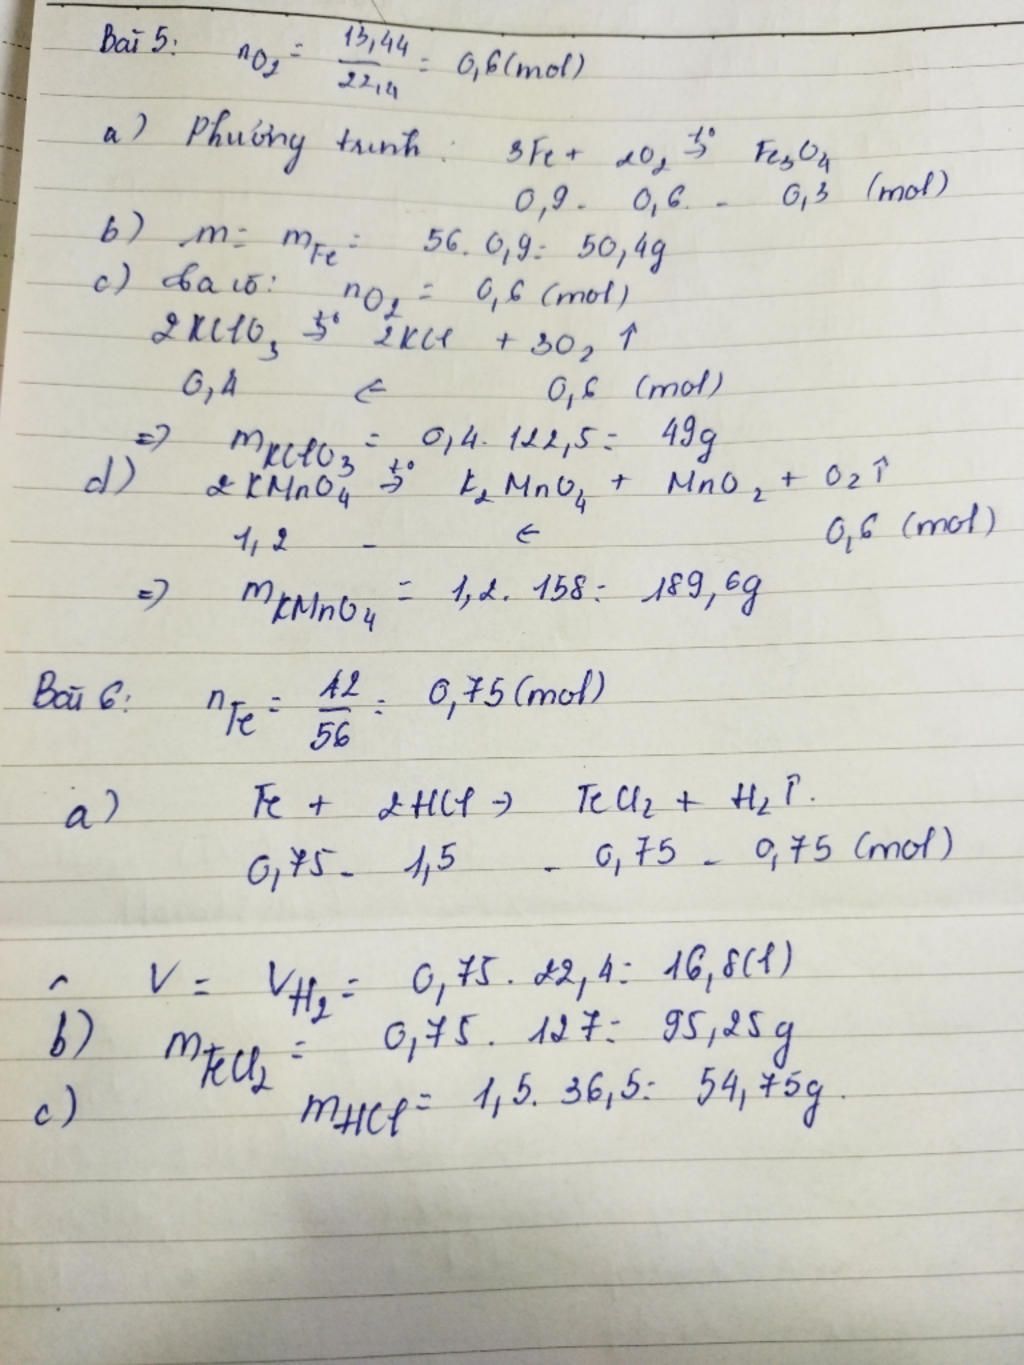 Bài 5: nO2 = 13,44/22,4 = 0,6 (mol)
a) Phương trình: 3Fe + 2O2 t°→ Fe3O4
0,9 - 0,6 - 0,3 (mol)
b) m = mFe = 56. 0,9 = 50,4g
c) Ta có: nO2 = 0,6 (mol)
2KClO3 t°→ 2KCl + 3O2 ↑
0,4 ← 0,6 (mol)
=> mKClO3 = 0,4. 122,5 = 49g
d) 2KMnO4 t°→ K2MnO4 + MnO2 + O2↑
1,2 - ← 0,6 (mol)
=> mKMnO4 = 1,2. 158 = 189,6g
Bài 6: nFe = 42/56 = 0,75 (mol)
a) Fe + 2HCl → FeCl2 + H2↑.
0,75 - 1,5 - 0,75 - 0,75 (mol)
V = VH2 = 0,75. 22,4 = 16,8(l)
b) mFeCl2 = 0,75. 127 = 95,25g
c) mHCl = 1,5. 36,5 = 54,75g.